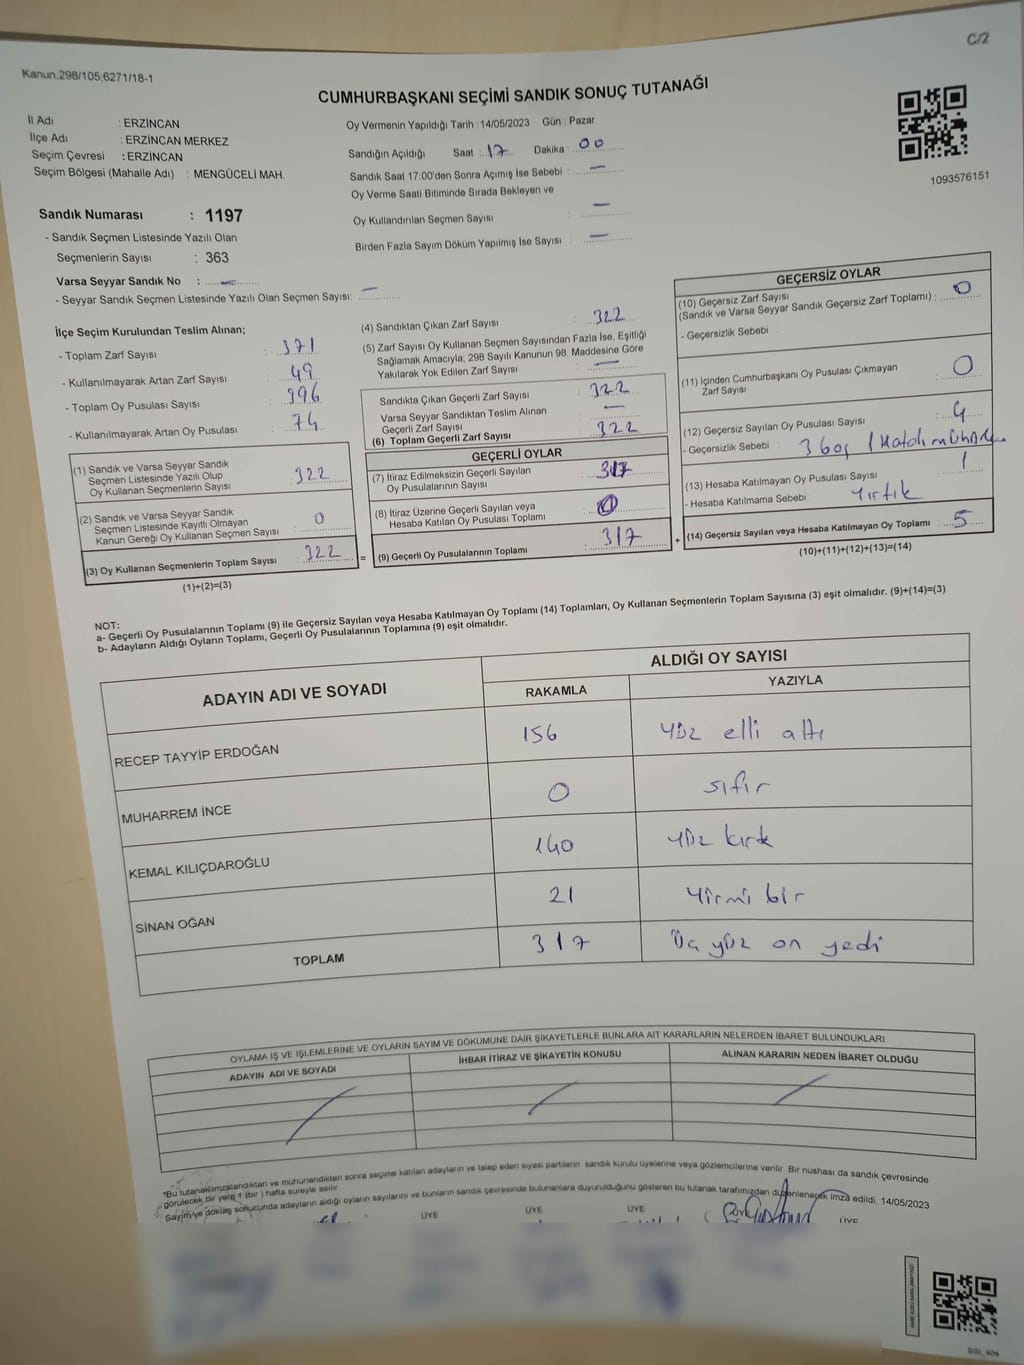 C/2
Kanun.298/105;6271/18-1
CUMHURBAŞKANI SEÇİMİ SANDIK SONUÇ TUTANAĞI
İl Adı : ERZİNCAN
İlçe Adı : ERZİNCAN MERKEZ
Seçim Çevresi : ERZİNCAN
Seçim Bölgesi (Mahalle Adı) : MENGÜCELİ MAH.
Oy Vermenin Yapıldığı Tarih : 14/05/2023 Gün : Pazar
Sandığın Açıldığı Saat : 17 Dakika : 00
Sandık Saat 17:00'den Sonra Açımış İse Sebebi : —
Oy Verme Saati Bitiminde Sırada Bekleyen ve
Oy Kullandırılan Seçmen Sayısı : —
Birden Fazla Sayım Döküm Yapılmış İse Sayısı : —
1093576151
Sandık Numarası : 1197
- Sandık Seçmen Listesinde Yazılı Olan
Seçmenlerin Sayısı : 363
Varsa Seyyar Sandık No : —
- Seyyar Sandık Seçmen Listesinde Yazılı Olan Seçmen Sayısı: —
İlçe Seçim Kurulundan Teslim Alınan;
- Toplam Zarf Sayısı : 371
- Kullanılmayarak Artan Zarf Sayısı : 49
- Toplam Oy Pusulası Sayısı : 396
- Kullanılmayarak Artan Oy Pusulası : 74
(1) Sandık ve Varsa Seyyar Sandık
Seçmen Listesinde Yazılı Olup
Oy Kullanan Seçmenlerin Sayısı : 322
(2) Sandık ve Varsa Seyyar Sandık
Seçmen Listesinde Kayıtlı Olmayan
Kanun Gereği Oy Kullanan Seçmen Sayısı : 0
(3) Oy Kullanan Seçmenlerin Toplam Sayısı : 322
(1)+(2)=(3)
(4) Sandıktan Çıkan Zarf Sayısı : 322
(5) Zarf Sayısı Oy Kullanan Seçmen Sayısından Fazla İse, Eşitliği
Sağlamak Amacıyla; 298 Sayılı Kanunun 98. Maddesine Göre
Yakılarak Yok Edilen Zarf Sayısı : —
Sandıkta Çıkan Geçerli Zarf Sayısı : 322
Varsa Seyyar Sandıktan Teslim Alınan
Geçerli Zarf Sayısı : —
(6) Toplam Geçerli Zarf Sayısı : 322
GEÇERLİ OYLAR
(7) İtiraz Edilmeksizin Geçerli Sayılan
Oy Pusulalarının Sayısı : 317
(8) İtiraz Üzerine Geçerli Sayılan veya
Hesaba Katılan Oy Pusulası Toplamı : 0
= (9) Geçerli Oy Pusulalarının Toplamı : 317
GEÇERSİZ OYLAR
(10) Geçersiz Zarf Sayısı
(Sandık ve Varsa Seyyar Sandık Geçersiz Zarf Toplamı) : 0
- Geçersizlik Sebebi :
(11) İçinden Cumhurbaşkanı Oy Pusulası Çıkmayan
Zarf Sayısı : 0
(12) Geçersiz Sayılan Oy Pusulası Sayısı : 4
- Geçersizlik Sebebi : 3 boş 1 Hatalı
(13) Hesaba Katılmayan Oy Pusulası Sayısı : 1
- Hesaba Katılmama Sebebi : Yırtık
+ (14) Geçersiz Sayılan veya Hesaba Katılmayan Oy Toplamı : 5
(10)+(11)+(12)+(13)=(14)
NOT:
a- Geçerli Oy Pusulalarının Toplamı (9) ile Geçersiz Sayılan veya Hesaba Katılmayan Oy Toplamı (14) Toplamları, Oy Kullanan Seçmenlerin Toplam Sayısına (3) eşit olmalıdır. (9)+(14)=(3)
b- Adayların Aldığı Oyların Toplamı, Geçerli Oy Pusulalarının Toplamına (9) eşit olmalıdır.
ADAYIN ADI VE SOYADI ALDIĞI OY SAYISI
RAKAMLA YAZIYLA
RECEP TAYYİP ERDOĞAN 156 Yüz elli altı
MUHARREM İNCE 0 sıfır
KEMAL KILIÇDAROĞLU 140 Yüz kırk
SİNAN OĞAN 21 Yirmi bir
TOPLAM 317 Üç yüz on yedi
OYLAMA İŞ VE İŞLEMLERİNE VE OYLARIN SAYIM VE DÖKÜMÜNE DAİR ŞİKAYETLERLE BUNLARA AİT KARARLARIN NELERDEN İBARET BULUNDUKLARI
ADAYIN ADI VE SOYADI İHBAR İTİRAZ VE ŞİKAYETİN KONUSU ALINAN KARARIN NEDEN İBARET OLDUĞU
*Bu tutanak imzalandıktan ve mühürlendikten sonra seçime katılan adayların ve talep eden siyasi partilerin sandık kurulu üyelerine veya gözlemcilerine verilir. Bir nüshası da sandık çevresinde
görülecek bir yere 1 (bir) hafta süreyle asılır.
Sayım ve döküm sonucunda adayların aldığı oyların sayılarını ve bunların sandık çevresinde bulunanlara duyurulduğunu gösteren bu tutanak tarafımızdan düzenlenerek imza edildi. 14/05/2023
ÜYE ÜYE ÜYE ÜYE